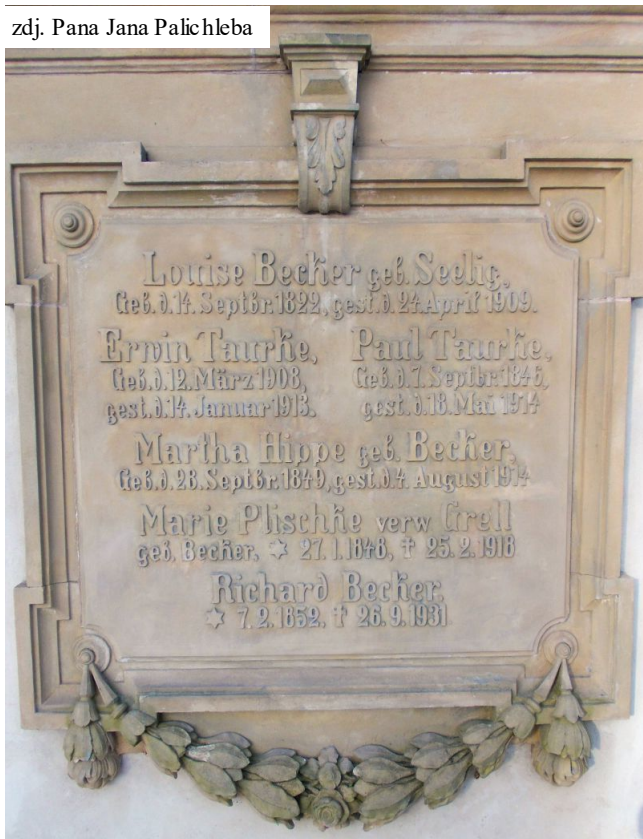 zdj. Pana Jana Palichleba
Louise Becker geb. Seelig,
Geb. d. 14. Septbr. 1822, gest. d. 24. April 1909.
Erwin Taurke, Paul Taurke,
Geb. d. 12. März 1908, Geb. d. 7. Septbr. 1846,
gest. d. 14. Januar 1913. gest. d. 18. Mai 1914
Martha Hippe geb. Becker,
Geb. d. 28. Septbr. 1849, gest. d. 4. August 1914
Marie Plischke verw Grell
geb. Becker. ✡ 27. 1. 1848, † 25. 2. 1918
Richard Becker.
✡ 7. 2. 1852. † 26. 9. 1931